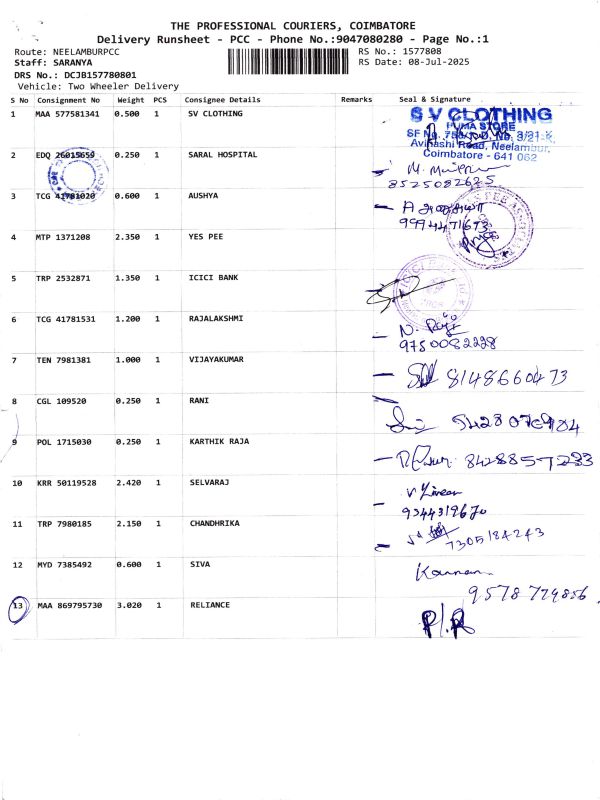 THE PROFESSIONAL COURIERS, COIMBATORE
Delivery Runsheet - PCC - Phone No.:9047080280 - Page No.:1
Route: NEELAMBURPCC
Staff: SARANYA
DRS No.: DCJB157780801
Vehicle: Two Wheeler Delivery
RS No.: 1577808
RS Date: 08-Jul-2025
S No Consignment No Weight PCS Consignee Details Remarks Seal & Signature
1 MAA 577581341 0.500 1 SV CLOTHING
S V CLOTHING
PUMA STORE
Avinashi Road, Neelambur,
Coimbatore - 641 062
2 EDQ 26015659 0.250 1 SARAL HOSPITAL
8525082625
3 TCG 41781020 0.600 1 AUSHYA
9994471673
4 MTP 1371208 2.350 1 YES PEE
5 TRP 2532871 1.350 1 ICICI BANK
ICICI
6 TCG 41781531 1.200 1 RAJALAKSHMI
9750082228
7 TEN 7981381 1.000 1 VIJAYAKUMAR
8148660473
8 CGL 109520 0.250 1 RANI
9428076984
9 POL 1715030 0.250 1 KARTHIK RAJA
8428857233
10 KRR 50119528 2.420 1 SELVARAJ
9344319670
11 TRP 7980185 2.150 1 CHANDHRIKA
7305184243
12 MYD 7385492 0.600 1 SIVA
Kannan
9578779856
13 MAA 869795730 3.020 1 RELIANCE